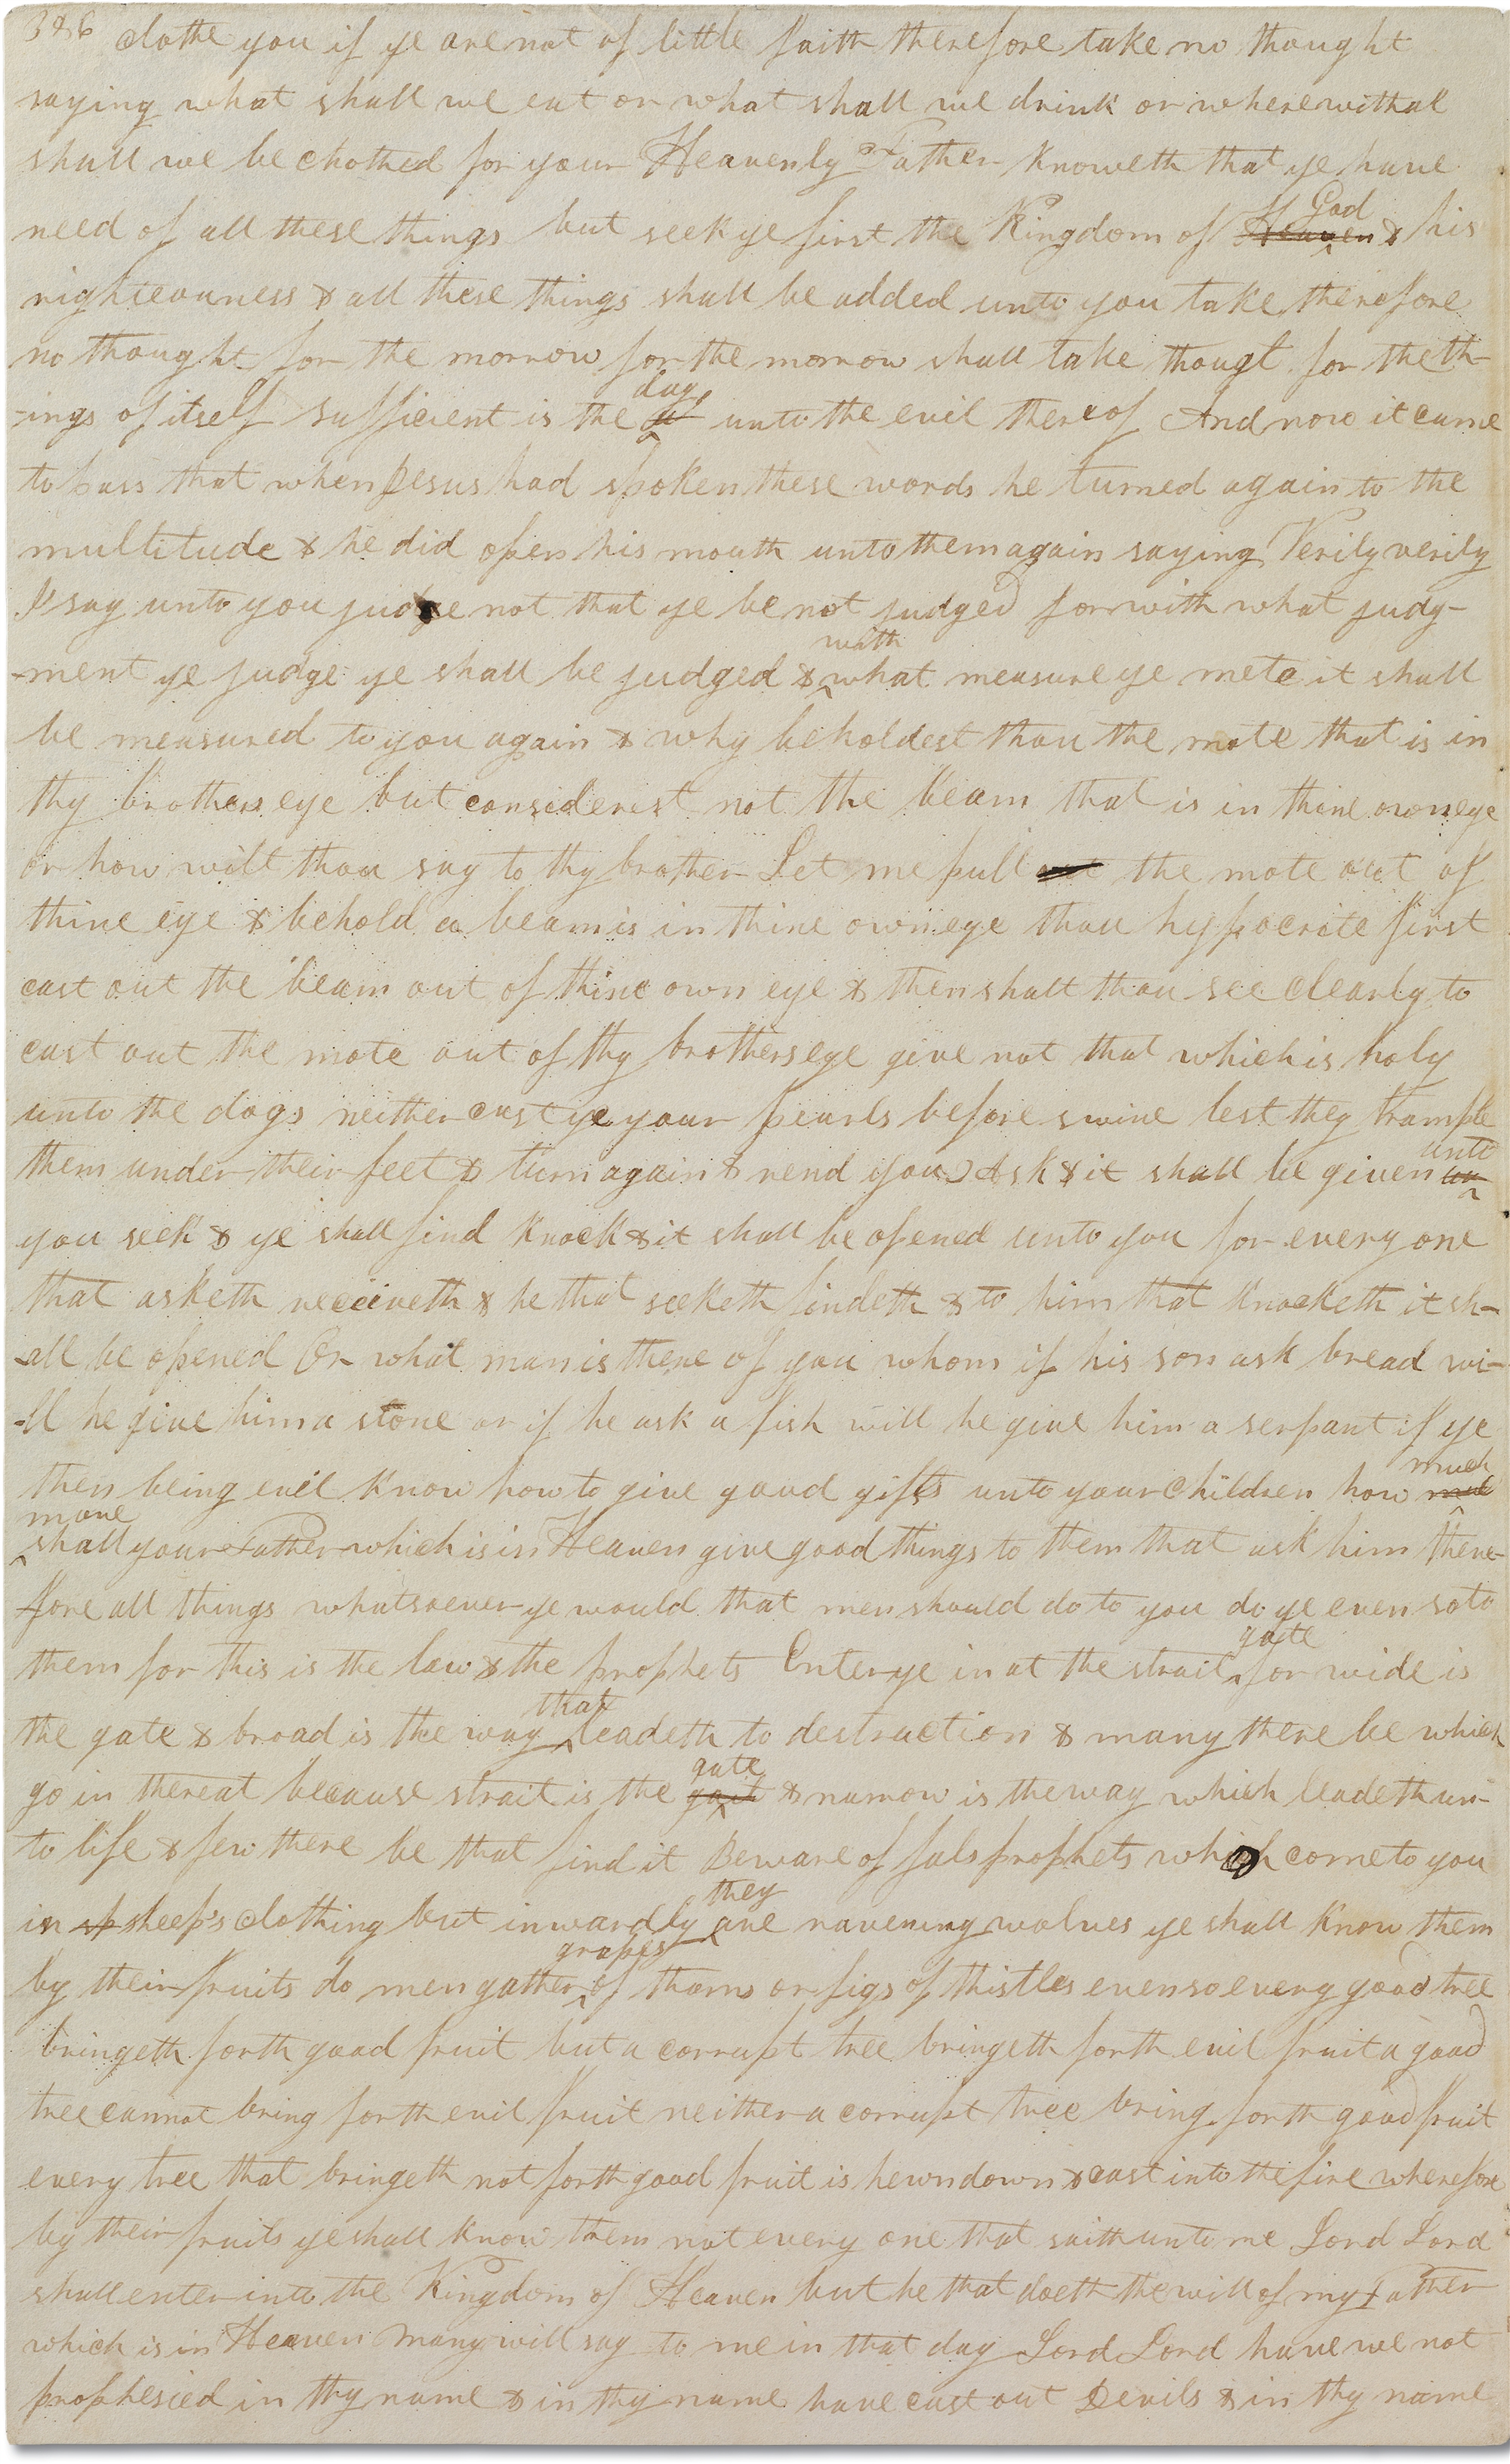 386 clothe you if ye are not of little faith therefore take no thought
saying what shall we eat or what shall we drink or wherewithal
shall we be clothed for your Heavenly Father knoweth that ye have
need of all these things but seek ye first the Kingdom of Heaven God & his
righteousness & all these things shall be added unto you take therefore
no thought for the morrow for the morrow shall take thougt for the th-
-ings of itself sufficient is the day unto the evil thereof And now it came
to pass that when Jesus had spoken these words he turned again to the
multitude & he did open his mouth unto them again saying Verily verily
I say unto you judge not that ye be not judged for with what judg-
-ment ye judge ye shall be judged & with what measure ye mete it shall
be measured to you again & why beholdest thou the mote that is in
thy brothers eye but considerest not the beam that is in thine own eye
or how wilt thou say to thy brother Let me pull out the mote out of
thine eye & behold a beam is in thine own eye thou hypocrite first
cast out the beam out of thine own eye & then shalt thou see clearly to
cast out the mote out of thy brothers eye give not that which is holy
unto the dogs neither cast ye your pearls before swine lest they trample
them under their feet & turn again & rend you Ask & it shall be given un unto
you seek & ye shall find knock & it shall be opened unto you for every one
that asketh receiveth & he that seeketh findeth & to him that knocketh it sh-
-all be opened Or what man is there of you whom if his son ask bread wi-
-ll he give him a stone or if he ask a fish will he give him a serpant if ye
then being evil know how to give good gifts unto your children how muc much
more shall your Father which is in Heaven give good things to them that ask him there-
fore all things whatsoever ye would that men should do to you do ye even so to
them for this is the law & the prophets Enter ye in at the strait gate for wide is
the gate & broad is the way that leadeth to destruction & many there be which
go in thereat because strait is the gait gate & narrow is the way which leadeth un-
to life & few there be that find it Beware of fals prophets which come to you
in sp sheep's clothing but inwardly they are ravening wolves ye shall know them
by their fruits do men gather grapes of thorns or figs of thistles even so every good tree
bringeth forth good fruit but a corrupt tree bringeth forth evil fruit a good
tree cannot bring forth evil fruit neither a corrupt tree bring forth good fruit
every tree that bringeth not forth good fruit is hewn down & cast into the fire wherefore
by their fruits ye shall know them not every one that saith unto me Lord Lord
shall enter into the Kingdom of Heaven but he that doeth the will of my Father
which is in Heaven many will say to me in that day Lord Lord have we not
prophesied in thy name & in thy name have cast out Devils & in thy name